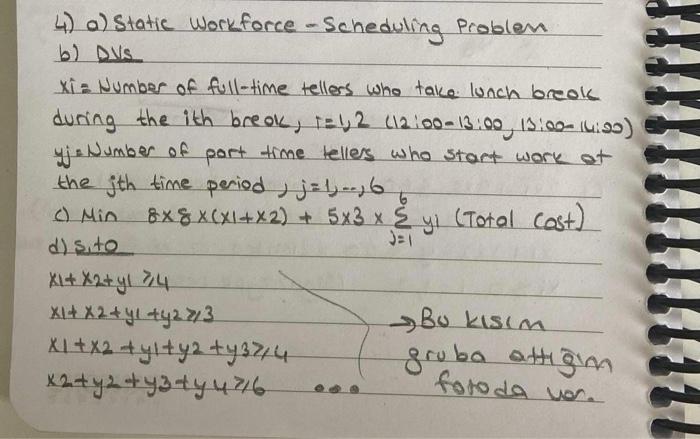 4) a) Static Workforce - Scheduling Problem
b) DVs
xi = Number of full-time tellers who take lunch break
during the ith break, i=1,2 (12:00-13:00, 13:00-14:00)
yj = Number of part time tellers who start work at
the jth time period, j=1,--,6
c) Min 8x8x(x1+x2) + 5x3 x 6 Σ j=1 y1 (Total Cost)
d) s.to
x1+x2+y1 ≥ 4
x1+x2+y1+y2 ≥ 3
x1+x2+y1+y2+y3 ≥ 4
x2+y2+y3+y4 ≥ 6 ...
→ Bu kısım
gruba attığım
fotoda var.